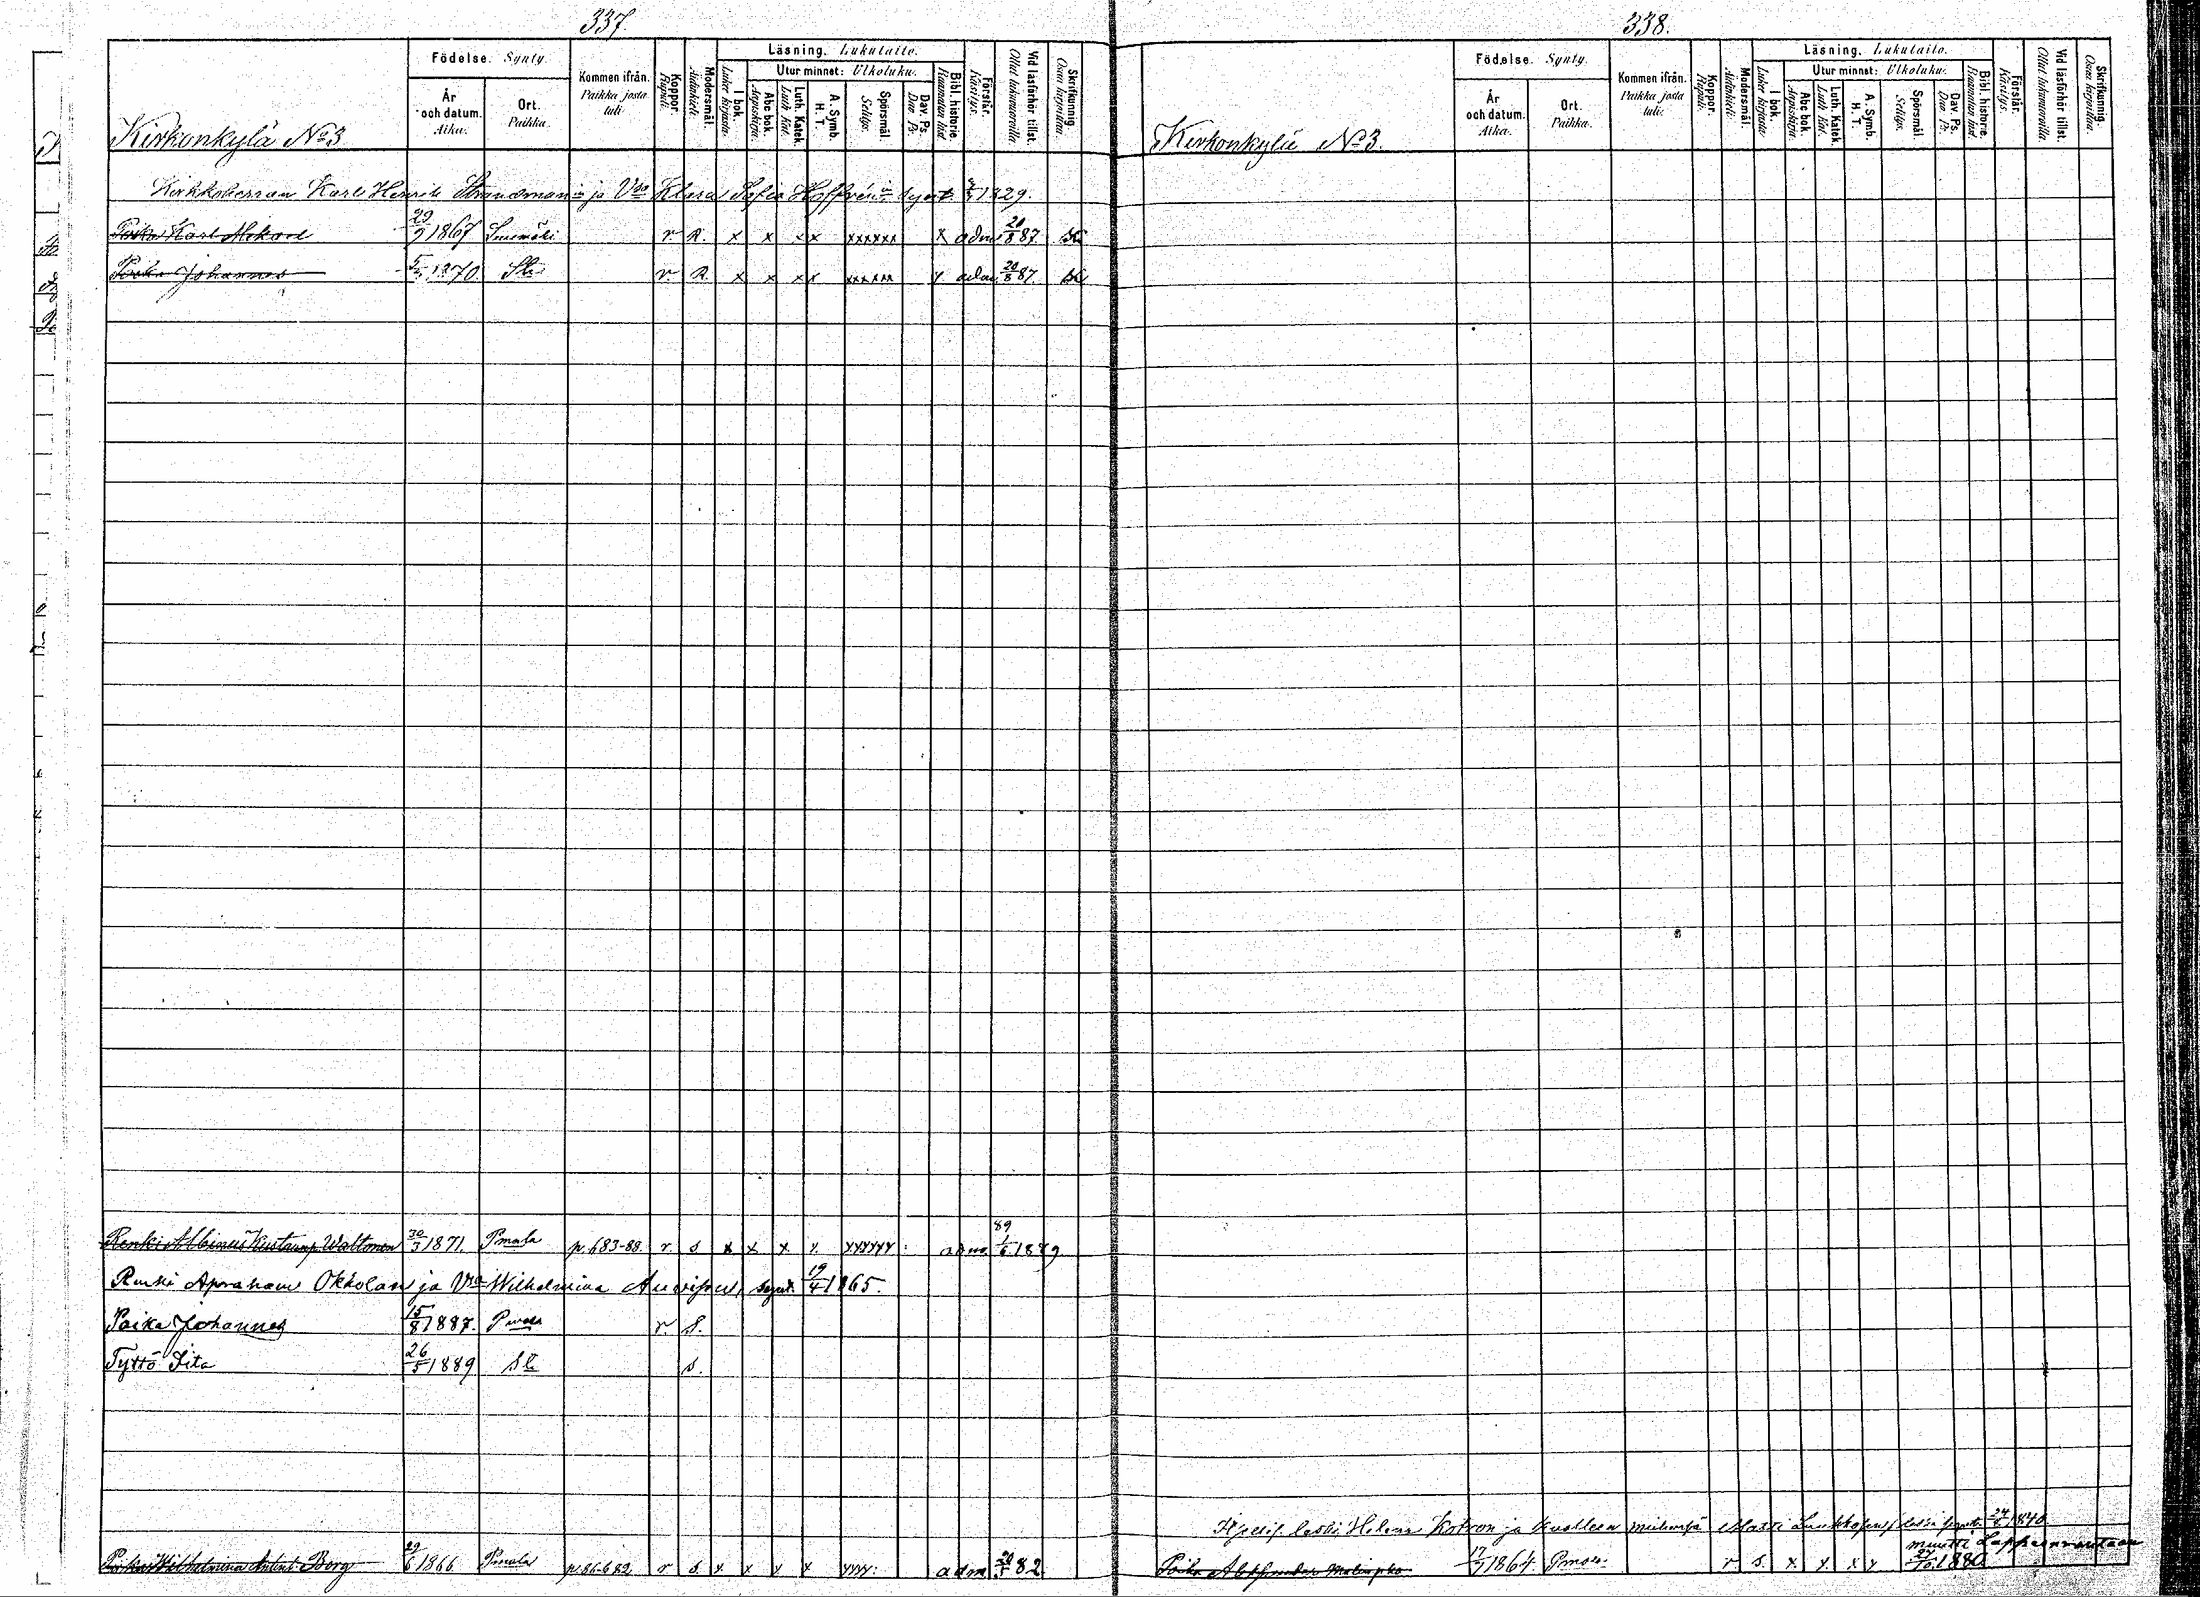 337.
Födelse. Synty.
År och datum. Aika.
Ort. Paikka.
Kommen ifrån. Paikka josta tuli.
Koppor. Rupuli.
Modersmål. Äidinkieli.
Läsning. Lukutaito.
I bok. Lukee kirjasta.
Utur minnet: Ulkoluku.
Abc bok. Aapiskirja.
Luth. Katek. Luth. Kat.
A. Symb. H. T.
Spörsmål. Selitys.
Dav. Ps. Dav. Ps.
Bibl. historie. Raamatun hist.
Förstår. Käsitys.
Vid läsförhör tillst. Ollut lukuvuorilla.
Skrifkunnig. Osaa kirjoittaa.
Kirkonkylä No 3
Kirkkoherran Karl Henrik Strandmanin ja Vmo Klara Sofia Hoffrénin synt. 1829.
Poika Karl Mikael 29/9 1867 r. R. x x x x xxxxxx x adm. 20/8 87
Poika Johannes 1870. r. R. x x x x xxxxxx x adm. 20/8 87.
Renki Albinus Kustaanp. Waltonen 30/3 1871. Pmala p. 683-88. r. s. x x x x xxxxxx adm. 89 1/6 1889
Renki Apraham Okkolan ja Vmo Wilhelmina synt. 19/4 1865.
Poika Johannes 15/8 1887. r. S.
Tyttö Iita 26/5 1889 s.
Borg 29/6 1866 Pmala p. 86-682 r s. x x x x xxxx. adm 82
338.
Födelse. Synty.
År och datum. Aika.
Ort. Paikka.
Kommen ifrån. Paikka josta tuli.
Koppor. Rupuli.
Modersmål. Äidinkieli.
Läsning. Lukutaito.
I bok. Lukee kirjasta.
Utur minnet: Ulkoluku.
Abc bok. Aapiskirja.
Luth. Katek. Luth. Kat.
A. Symb. H. T.
Spörsmål. Selitys.
Dav. Ps. Dav. Ps.
Bibl. historie. Raamatun hist.
Förstår. Käsitys.
Vid läsförhör tillst. Ollut lukuvuorilla.
Skrifkunnig. Osaa kirjoittaa.
Kirkonkylä No 3.
leski Helena ja kuolleen miehensä 1840
muutti Lappeenrantaan
Poika 17/7 1864. r s. x x x x 1880